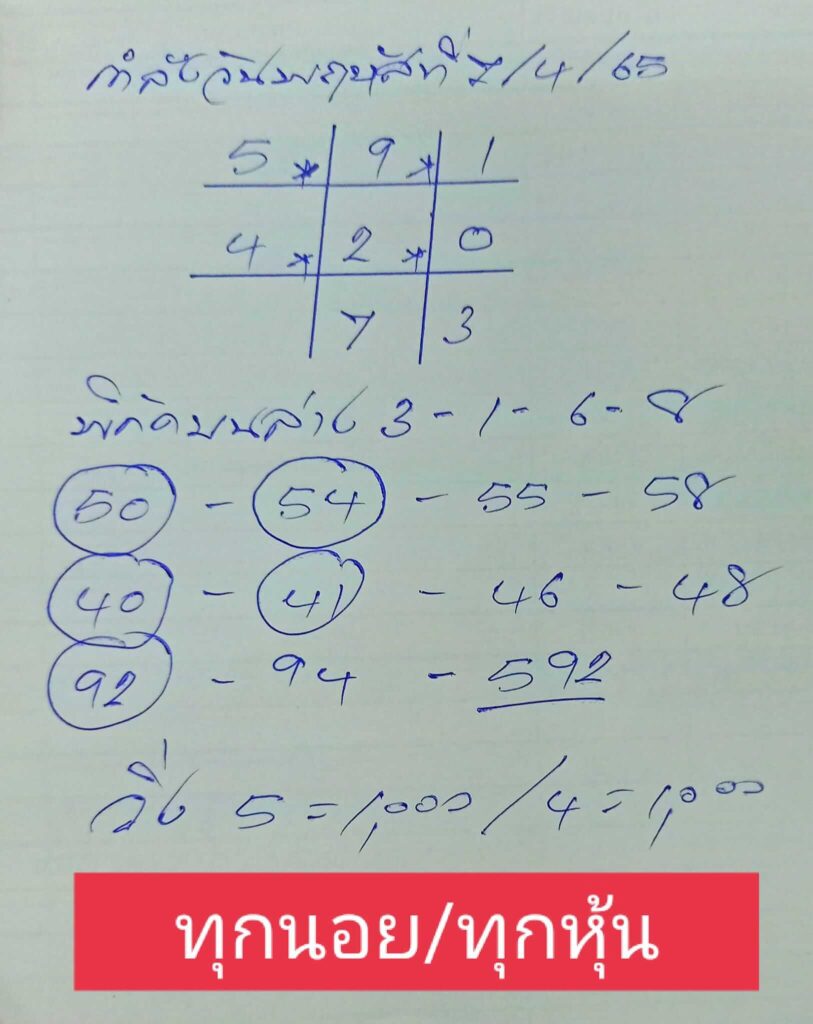 กำลังวันพฤหัสที่ 7/4/65
5 * 9 * 1
4 * 2 * 0
7 3
พิกัดบนล่าง 3 - 1 - 6 - 8
50 - 54 - 55 - 58
40 - 41 - 46 - 48
92 - 94 - 592
วิ่ง 5 = 1,000 / 4 = 1,000
ทุกนอย/ทุกหุ้น